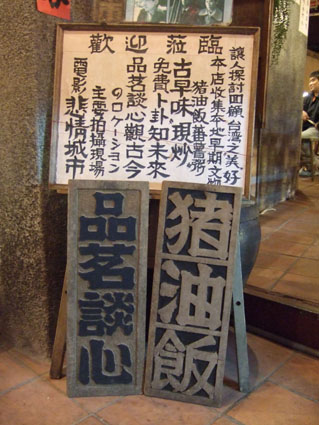 歡迎蒞臨
讓人探討回顧台灣之美好
本店收集本地早期文物
猪油飯番薯粥
古早味現炒
免費卜卦知未來
品茗談心觀古今
のロケーション
主要拍攝現場
電影悲情城市
猪油飯
品茗談心